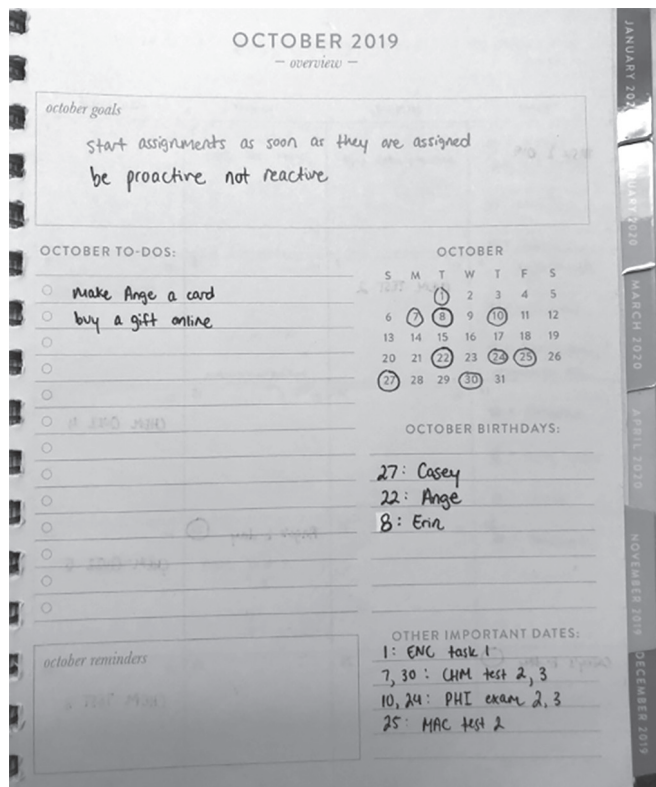 OCTOBER 2019
– overview –
october goals
start assignments as soon as they are assigned
be proactive not reactive
OCTOBER TO-DOS:
make Ange a card
buy a gift online
OCTOBER
S M T W T F S
1 2 3 4 5
6 7 8 9 10 11 12
13 14 15 16 17 18 19
20 21 22 23 24 25 26
27 28 29 30 31
OCTOBER BIRTHDAYS:
27: Casey
22: Ange
8: Erin
OTHER IMPORTANT DATES:
1: ENC task 1
7, 30: CHM test 2, 3
10, 24: PHI exam 2, 3
25: MAC test 2
october reminders
JANUARY 202
UARY 2020
MARCH 2020
APRIL 2020
NOVEMBER 2019
DECEMBER 2019